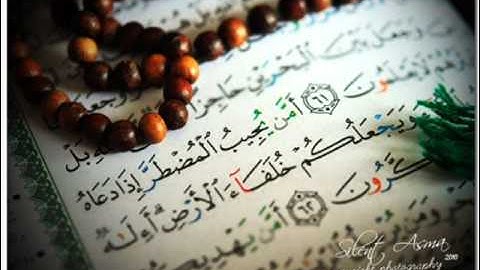 وَجَعَلَ بَيْنَ ٱلْبَحْرَيْنِ حَاجِزًا
بَلْ
يَعْلَمُونَ ٦١ أَمَّن يُجِيبُ ٱلْمُضْطَرَّ إِذَا دَعَاهُ
وَيَجْعَلُكُمْ خُلَفَآءَ ٱلْأَرْضِ أَءِلَٰهٌ
كَّرُونَ ٦٢ أَمَّن يَهْدِيـ
Silent Asma
photography 2010